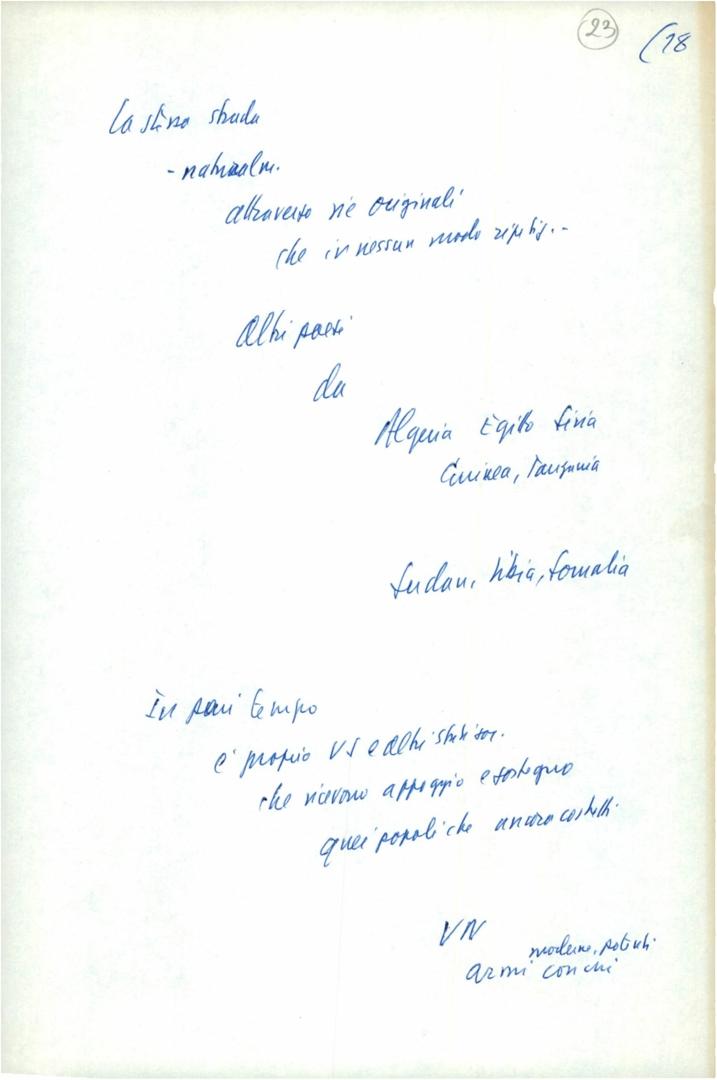 23
(18
La stessa strada
- naturalm.
attraverso vie originali
che in nessun modo
Altri paesi
da
Algeria Egitto Siria
Guinea, Tanzania
Sudan, Libia, Somalia
In pari tempo
è proprio US e altri
che ricevono appoggio e sostegno
quei popoli che ancora costretti
VN
moderne, potenti
armi con cui